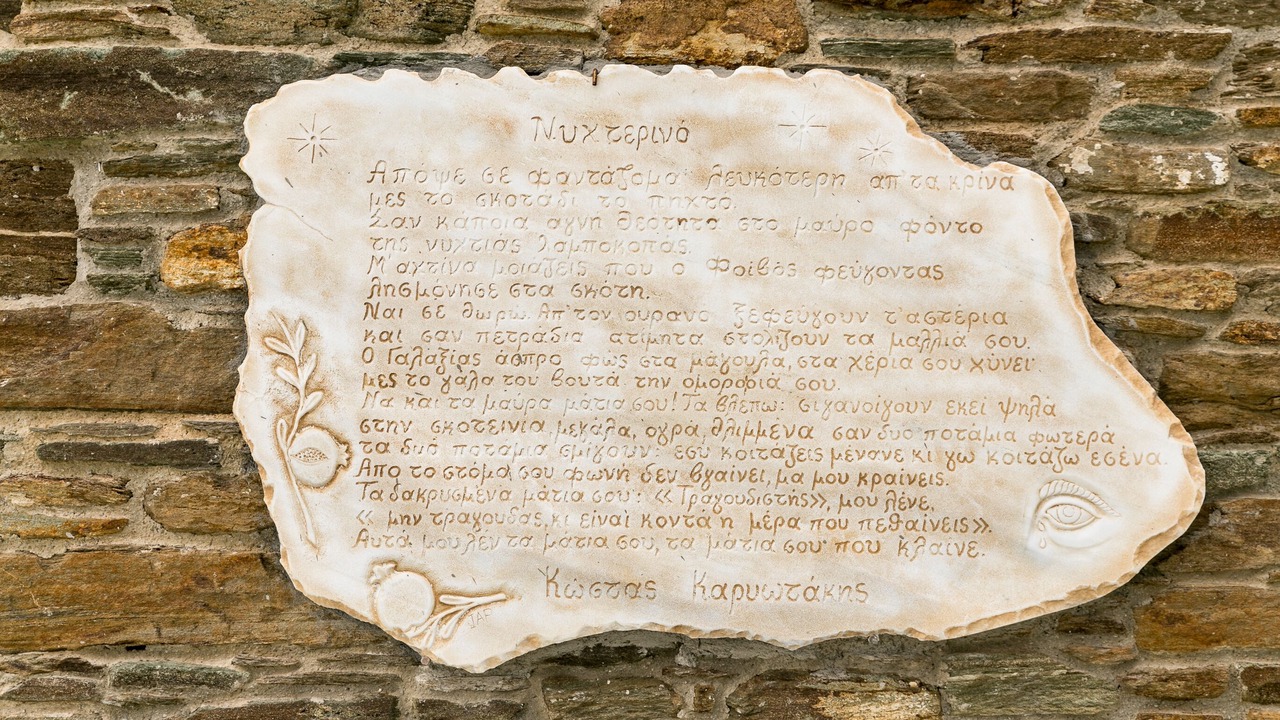 Νυχτερινό
Απόψε σε φαντάζομαι λευκότερη απ'τα κρίνα
μες το σκοτάδι το πηχτο.
Σαν κάποια αγνη θεότητα στο μαύρο φόντο
της νυχτιάς λαμποκοπάς.
Μ'αχτίνα μοιάζεις που ο Φοίβος φεύγοντας
λησμόνησε στα σκότη.
Ναι σε θωρω. Απ'τον ουρανο ξεφεύγουν τ'αστέρια
και σαν πετράδια ατίμητα στολίζουν τα μαλλιά σου.
Ο Γαλαξίας άσπρο φως στα μάγουλα, στα χέρια σου χύνει
μες το γάλα του βουτά την ομορφιά σου.
Να και τα μαύρα μάτια σου! Τα βλέπω: σιγανοίγουν εκεί ψηλά
στην σκοτεινια, μεγάλα, ογρά, θλιμμένα σαν δυο ποτάμια φωτερά
τα δυό ποτάμια σμίγουν: εσυ κοιτάζεις μένανε κι γω κοιτάζω εσένα.
Απο το στόμα σου φωνή δεν βγαίνει, μα μου κραίνεις.
Τα δακρυσμένα μάτια σου: «Τραγουδιστής», μου λένε,
«μην τραγουδας, κι είναι κοντά η μέρα που πεθαίνεις».
Αυτά μου λεν τα μάτια σου, τα μάτια σου που κλαίνε.
Κώστας Καρυωτάκης
JAF